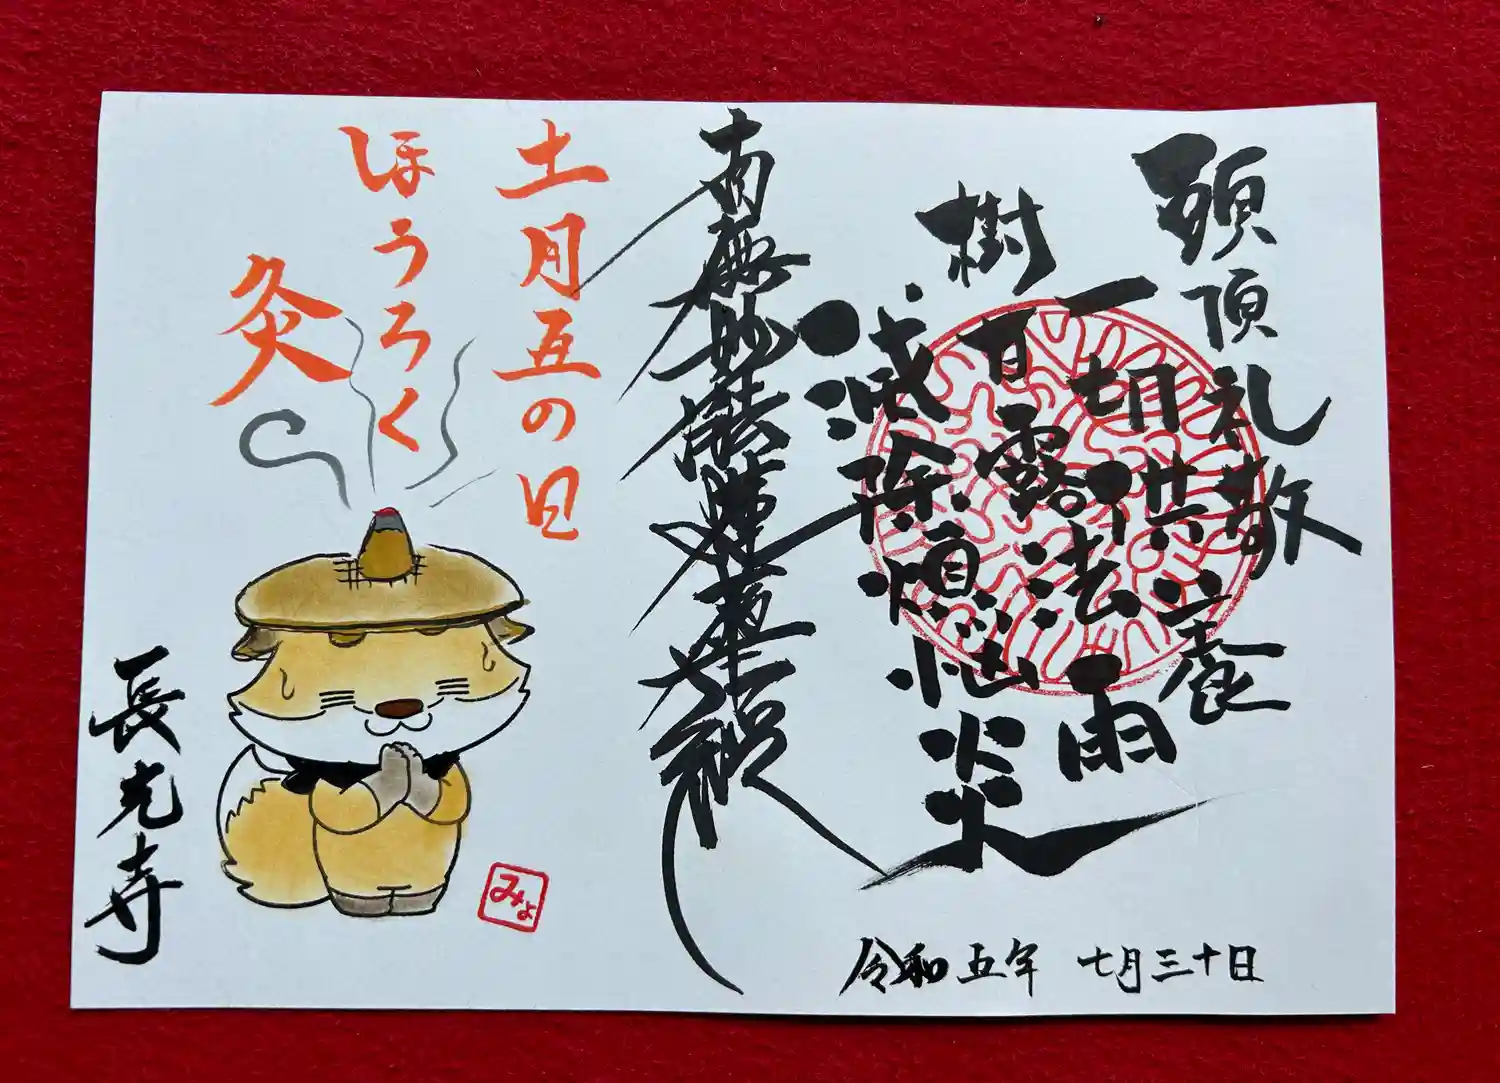 頭頂礼敬
一切供養
樹甘露法雨
滅除煩悩炎
南無妙法蓮華経
土用丑の日
ほうろく
灸
長光寺
みょ
令和五年 七月三十日